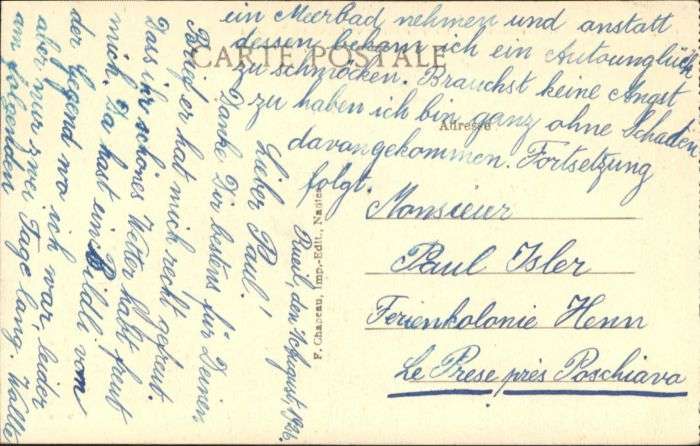 Rueil, den 7. August 1926.
Lieber Paul!
Danke Dir bestens für Deinen
Brief er hat mich recht gefreut.
Dass ihr schönes Wetter habt freut
mich. Da hast ein Bildli von
der Gegend wo ich war, leider
aber nur zwei Tage lang. Wollte
am folgenden
ein Meerbad nehmen und anstatt
dessen bekam ich ein Autounglück
zu schmöcken. Brauchst keine Angst
zu haben ich bin ganz ohne Schaden
davongekommen. Fortsetzung
folgt.
CARTE POSTALE
Adresse
F. Chapeau, Imp.-Edit., Nantes
Monsieur
Paul Isler
Ferienkolonie Henn
Le Prese près Poschiavo